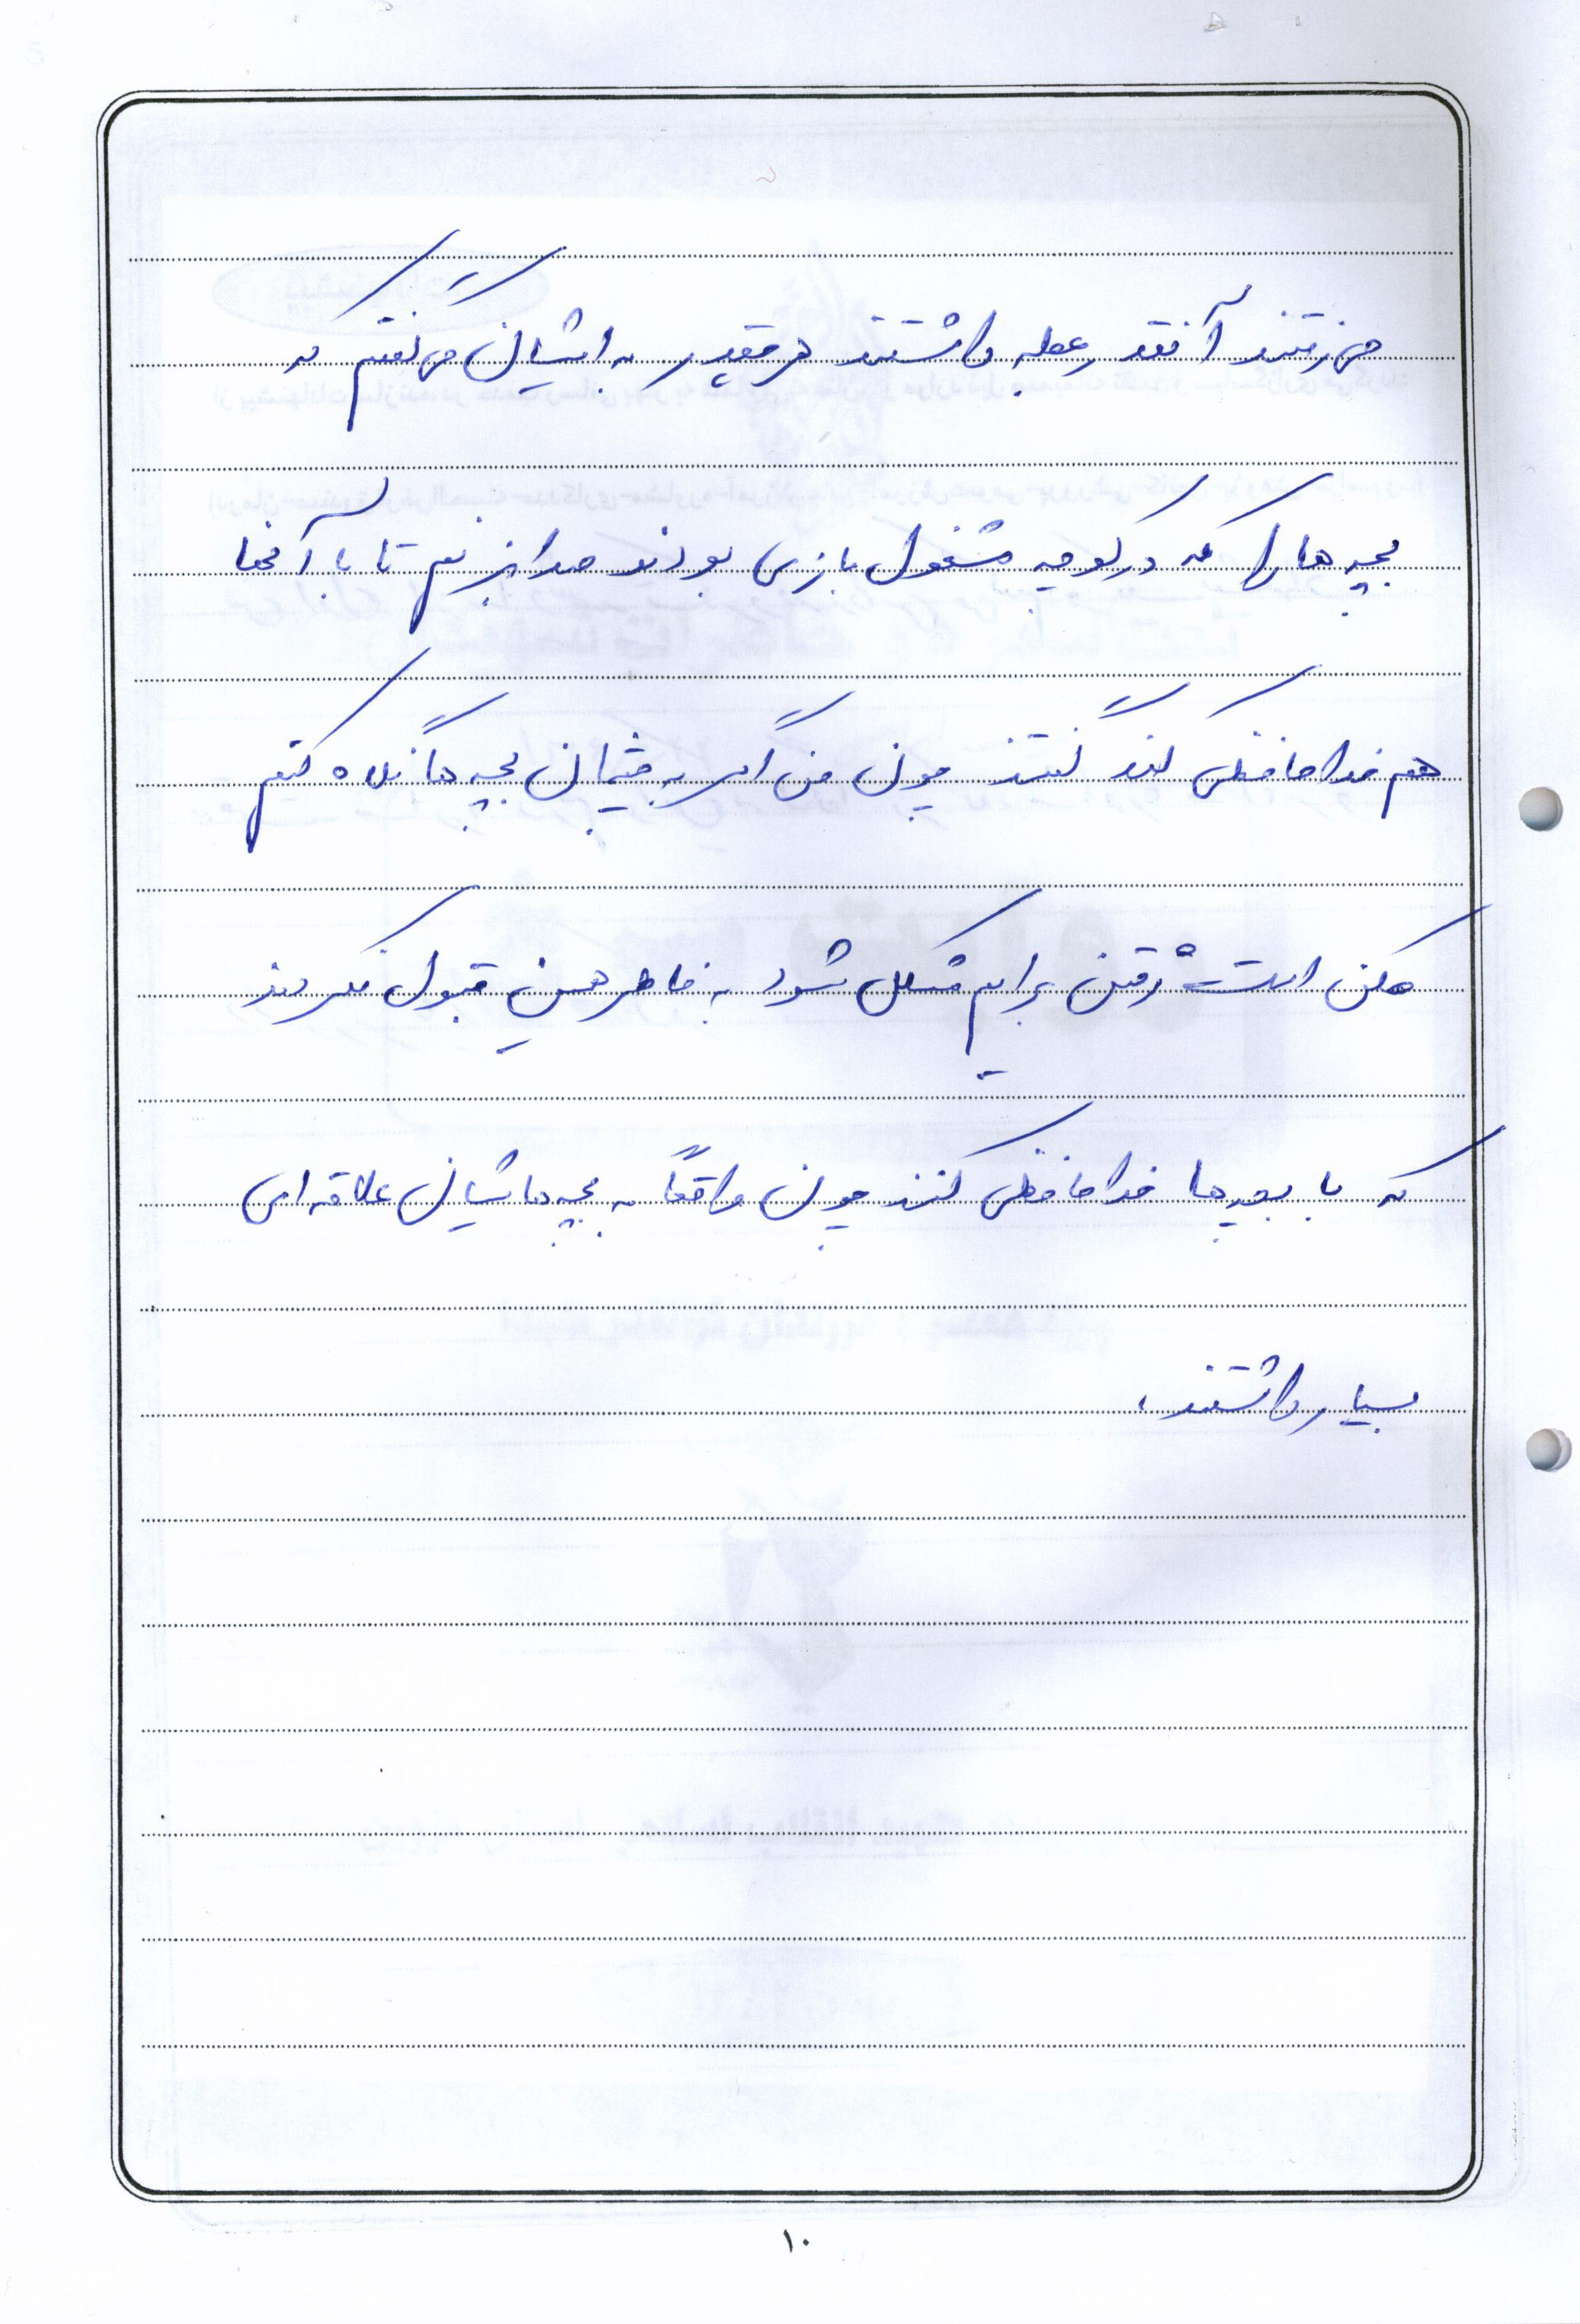 می‌رفتند آنقدر عجله داشتند هر چقدر به ایشان می‌گفتم که
بچه‌ها را که در کوچه مشغول بازی بودند صدا بزنم تا با آنها
هم خداحافظی کند گفتند چون من اگر به چشمان بچه‌ها نگاه کنم
ممکن است رفتن برایم مشکل شود به خاطر همین قبول نکردند
که با بچه‌ها خداحافظی کنند چون واقعاً به بچه‌هاشان علاقه‌ای
بسیار داشتند،
۱۰